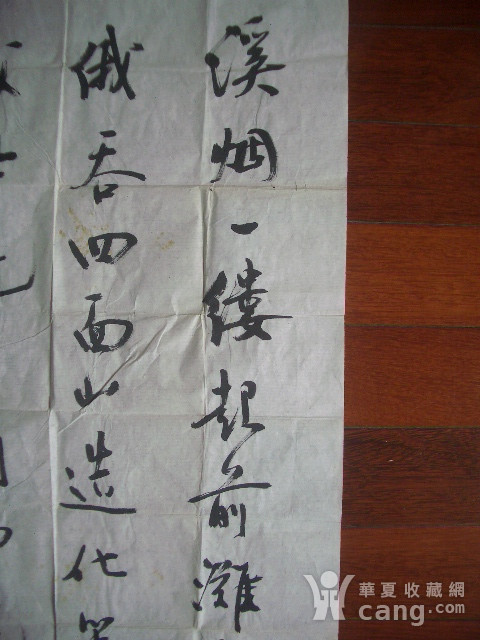 溪烟一縷起前灘
俄吞四面山造化
華夏收藏網
cang.com